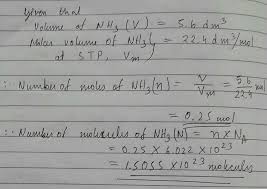 Given that
Volume of NH₃ (V) = 5.6 dm³
Molar volume of NH₃ ( = 22.4 dm³/mol
at STP, Vm)
∴ Number of moles of NH₃ (n) = V/Vm = 5.6/22.4
= 0.25 mol
∴ Number of molecules of NH₃ (N) = n × NA
= 0.25 × 6.022 × 10²³
= 1.5055 × 10²³ molecules